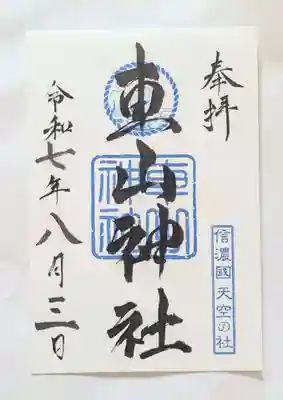 奉拝
東山神社
東山神社
信濃國 天空の社
令和七年八月三日